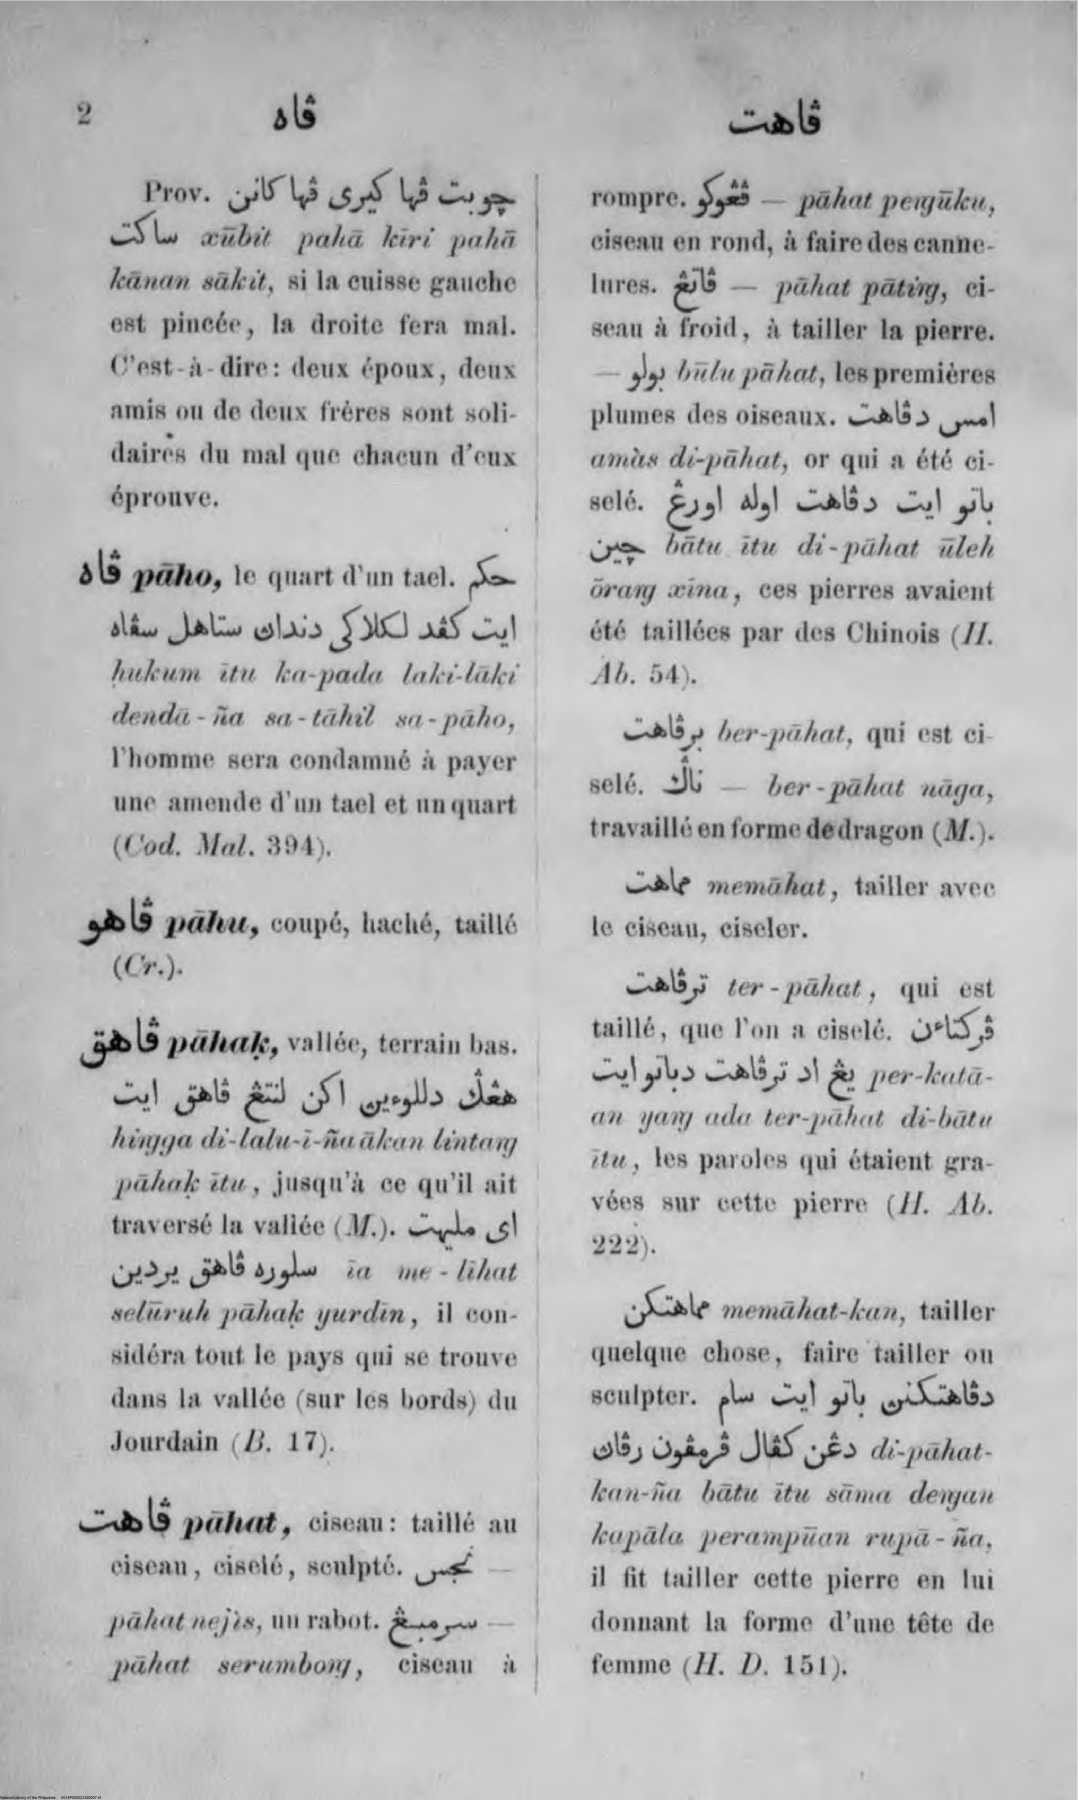 2
ڤاه
ڤاهت
Prov. چوبت ڤها كيرى ڤها كانن
ساكت xūbit pahā kīri pahā
kānan sākit, si la cuisse gauche
est pincée, la droite fera mal.
C'est-à-dire: deux époux, deux
amis ou de deux frères sont soli-
daires du mal que chacun d'eux
éprouve.
ڤاه pāho, le quart d'un tael. حكم
ايت كڤد لكلاكى دندان ستاهل سڤاه
ḥukum ītu ka-pada laki-lāki
dendā-ña sa-tāhil sa-pāho,
l'homme sera condamné à payer
une amende d'un tael et un quart
(Cod. Mal. 394).
ڤاهو pāhu, coupé, haché, taillé
(Cr.).
ڤاهق pāhaḳ, vallée, terrain bas.
هڠݢ دللوءين اكن لنتڠ ڤاهق ايت
hiŋga di-lalu-ī-ña ākan lintaŋ
pāhaḳ ītu, jusqu'à ce qu'il ait
traversé la vallée (M.). اى مليهت
سلوره ڤاهق يردين īa me-līhat
selūruh pāhaḳ yurdīn, il con-
sidéra tout le pays qui se trouve
dans la vallée (sur les bords) du
Jourdain (B. 17).
ڤاهت pāhat, ciseau: taillé au
ciseau, ciselé, sculpté. نجس —
pāhat nejis, un rabot. سرمبڠ —
pāhat serumboŋ, ciseau à
rompre. ڤڠوكو — pāhat peŋūku,
ciseau en rond, à faire des canne-
lures. ڤاتڠ — pāhat pātiŋ, ci-
seau à froid, à tailler la pierre.
— بولو būlu pāhat, les premières
plumes des oiseaux. امس دڤاهت
amàs di-pāhat, or qui a été ci-
selé. باتو ايت دڤاهت اوله اورڠ
چين bātu ītu di-pāhat ūleh
ōraŋ xīna, ces pierres avaient
été taillées par des Chinois (H.
Ab. 54).
برڤاهت ber-pāhat, qui est ci-
selé. ناݢ — ber-pāhat nāga,
travaillé en forme de dragon (M.).
مماهت memāhat, tailler avec
le ciseau, ciseler.
ترڤاهت ter-pāhat, qui est
taillé, que l'on a ciselé. ڤركتاءن
يڠ اد ترڤاهت دباتو ايت per-katā-
an yaŋ ada ter-pāhat di-bātu
ītu, les paroles qui étaient gra-
vées sur cette pierre (H. Ab.
222).
مماهتكن memāhat-kan, tailler
quelque chose, faire tailler ou
sculpter. دڤاهتكنن باتو ايت سام
دڠن كڤال ڤرمڤون رڤان di-pāhat-
kan-ña bātu ītu sāma deŋan
kapāla perampūan rupā-ña,
il fit tailler cette pierre en lui
donnant la forme d'une tête de
femme (H. D. 151).